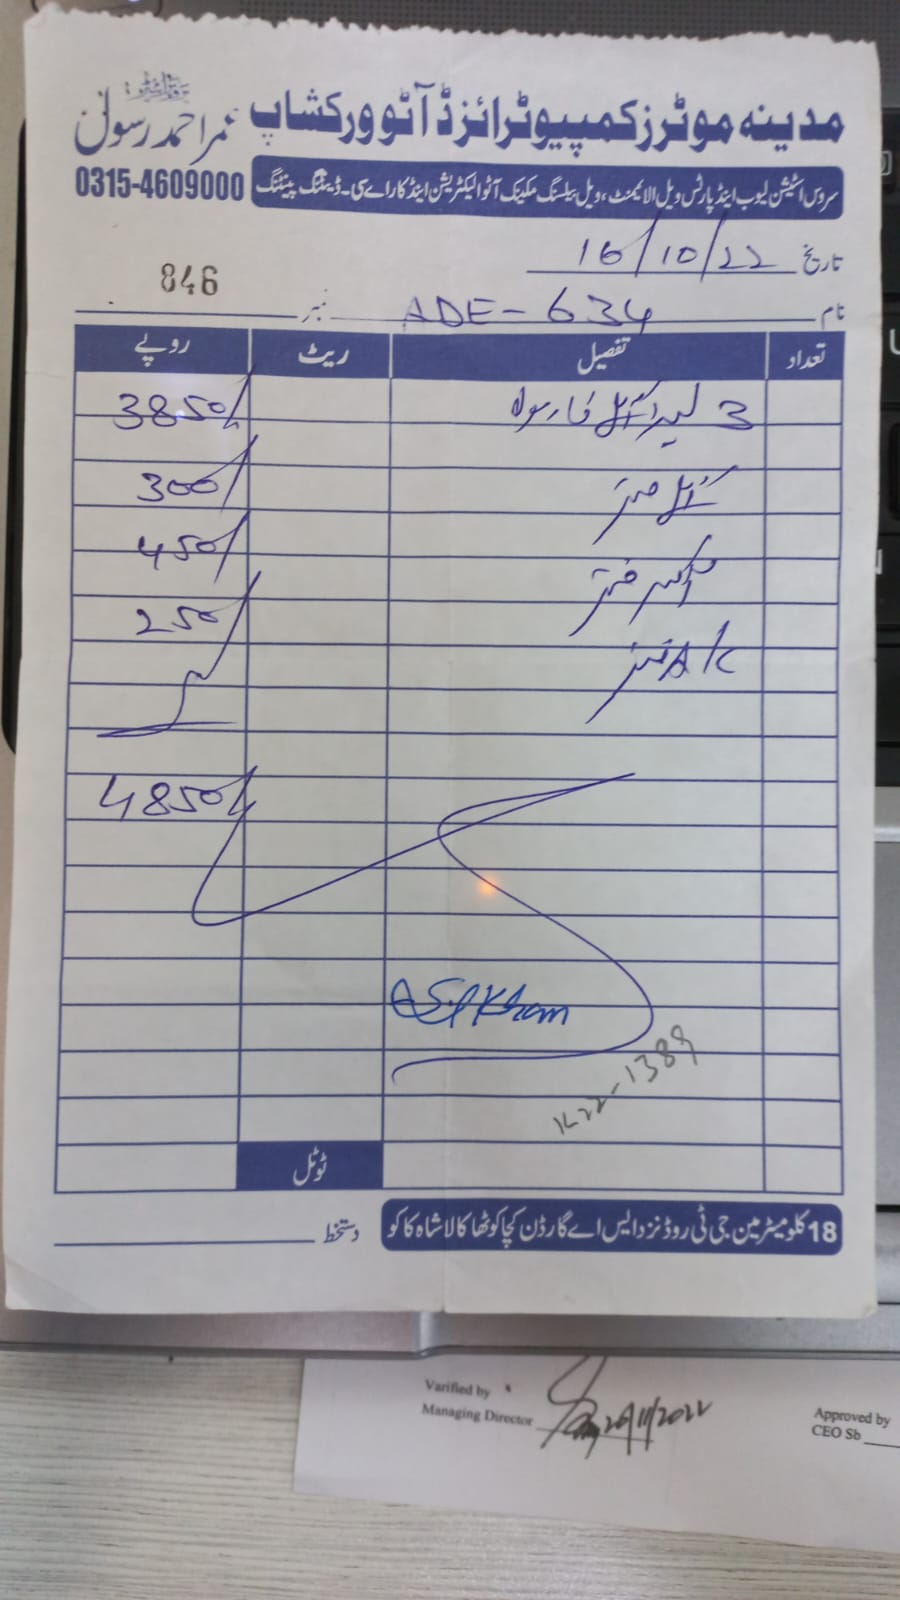 مدینہ موٹرز کمپیوٹرائزڈ آٹو ورکشاپ
عمر احمد رسولی
0315-4609000
سروس اسٹیشن لیوب اینڈ پارٹس ویل الائیمنٹ، ویل بیلسنگ مکینک آٹو الیکٹریشن اینڈ کار اے سی۔ ڈینٹنگ پینٹنگ
تاریخ 16/10/22
846
نام ADE-634 نمبر
تعداد تفصیل ریٹ روپے
3 لیٹر آئل فارمولا 3850/
آئل فلٹر 300/
ائر فلٹر 450/
A/C فلٹر 250/
4850/
Asif Khan
K22-1389
ٹوٹل
18 کلومیٹر مین جی ٹی روڈ نزد ایس اے گارڈن کچا کوٹھا کالا شاہ کاکو
دستخط
Varified by
Managing Director 26/11/2022
Approved by
CEO Sb